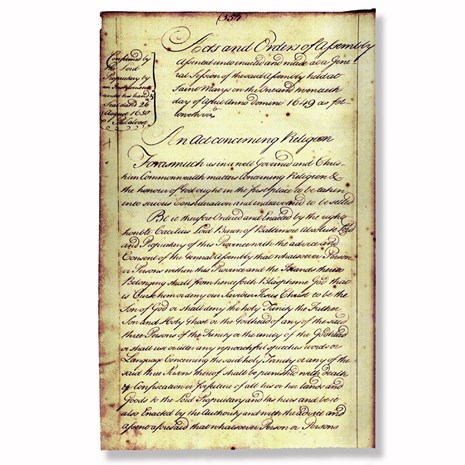 (354)
Acts and Orders of Assembly
Assented unto enacted and made at a Gene
ral Session of the said Assembly held at
Saint Maryes on the one and twentieth
day of Aprill Anno Domini 1649 as fol
loweth viz
Confirmed by
the Lord
Proprietary by
an Instrument
under his hand &
Seale dated 26
August 1650
An Act concerning Religion
Forasmuch as in a well Governed and Chris
tian Commonwealth matters Concerning Religion &
the honour of God ought in the first place to be taken
into serious Consideration and endeavoured to be settled
Be it therefore Ordered and Enacted by the right
honble Caecilius Lord Baron of Baltemore absolute Lord
and Proprietary of this Province with the advice and
Consent of the Generall Assembly that whatsoever Person
or Persons within this Province and the Islands thereto
Belonging shall from henceforth Blaspheme God that
is Curse him or deny our Saviour Jesus Christ to be the
Son of God or shall deny the holy Trinity the Father
Son and Holy Ghost or the Godhead of any of the said
three Persons of the Trinity or the unity of the Godhead
or shall use or utter any reproachful speeches words or
Language Concerning the said holy Trinity or any of the
said three Persons thereof shall be punished with death
& Confiscation or forfeiture of all his or her lands and
Goods to the Lord Proprietary and his heirs and be it
also Enacted by the Authority and with the advice and
assent aforesaid that whatsoever Person or Persons